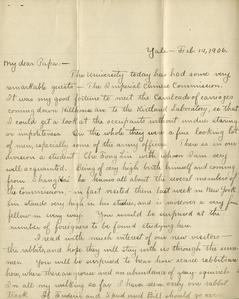 Yale - Feb 14, 1906.
My dear Papa:—
The University today has had some very
remarkable guests — The Imperial Chinese Commission.
It was my good fortune to meet the carloads of carriages
coming down Hillhouse Ave to the Kirtland Laboratory, so that
I could get a look at the occupants without undue staring
or impoliteness. On the whole they were a fine looking lot
of men, especially some of the army officers. There is in our
division a student with whom I am very
well acquainted. Being of very high birth himself and coming
from he knows all about the several members of
the commission, - in fact visited them last week in New York
Lin stands very high in his studies, and is moreover a very fine
fellow in every way. You would be surprised at the
number of foreigners to be found studying here.
I read with much interest of our new visitors —
the rabbits, and hope they will stay with us through the summer
You will be surprised to hear how scarce rabbits are
here, where there are groves and an abundance of gray-squirrels.
In all my walking so far I have seen only one rabbit
track. If and I and Bill should go over